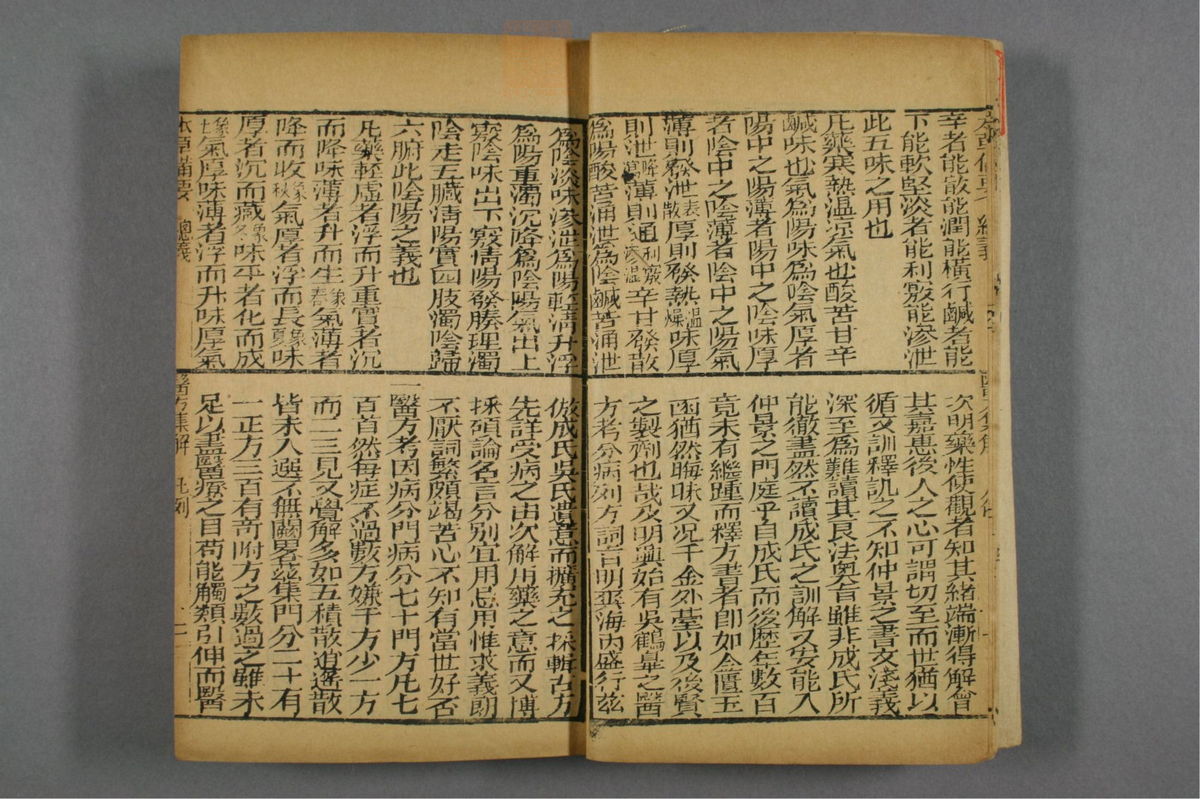 辛者能散能潤能橫行鹹者能
下能軟堅淡者能利竅能滲泄
此五味之用也
凡藥寒熱溫涼氣也酸苦甘辛
鹹味也氣爲陽味爲陰氣厚者
陽中之陽薄者陽中之陰味厚
者陰中之陰薄者陰中之陽氣
薄則發泄表散厚則發熱溫燥味厚
則泄降瀉薄則通利竅滲溫辛甘發散
爲陽酸苦涌泄爲陰鹹苦涌泄
爲陰淡味滲泄爲陽輕清升浮
爲陽重濁沉降爲陰陽氣出上
竅陰味出下竅清陽發腠理濁
陰走五臟清陽實四肢濁陰歸
六腑此陰陽之義也
凡藥輕虛者浮而升重實者沉
而降味薄者升而生象春氣薄者
降而收象秋氣厚者浮而長象夏味
厚者沉而藏象冬味平者化而成
象土氣厚味薄者浮而升味厚氣
本草備要 總義
次明藥性使觀者知其緒端漸得解會
其嘉惠後人之心可謂切至而世猶以
循文訓釋譏之不知仲景之書文淺義
深至爲難讀其良法奧旨雖非成氏所
能徹盡然不讀成氏之訓解又安能入
仲景之門庭乎自成氏而後歷年數百
竟未有繼踵而釋方書者卽如金匱玉
函猶然晦昧又况千金外臺以及後賢
之製劑也哉及明興始有吳鶴臯之醫
方考分病列方詞旨明爽海內盛行茲
倣成氏吳氏遺意而擴充之採輯古方
先詳受病之由次解用藥之意而又博
採碩論名言分別宜用忌用惟求義朗
不厭詞繁頗竭苦心不知有當世好否
一醫方考因病分門病分七十門方凡七
百百然每症不過數方嫌于方少一方
而二三見又覺解多如五積散逍遙散
皆未入選不無闕畧茲集門分二十有
一正方三百有奇附方之數過之雖未
足以盡醫療之目苟能觸類引伸而醫
醫方集解 凡例 二